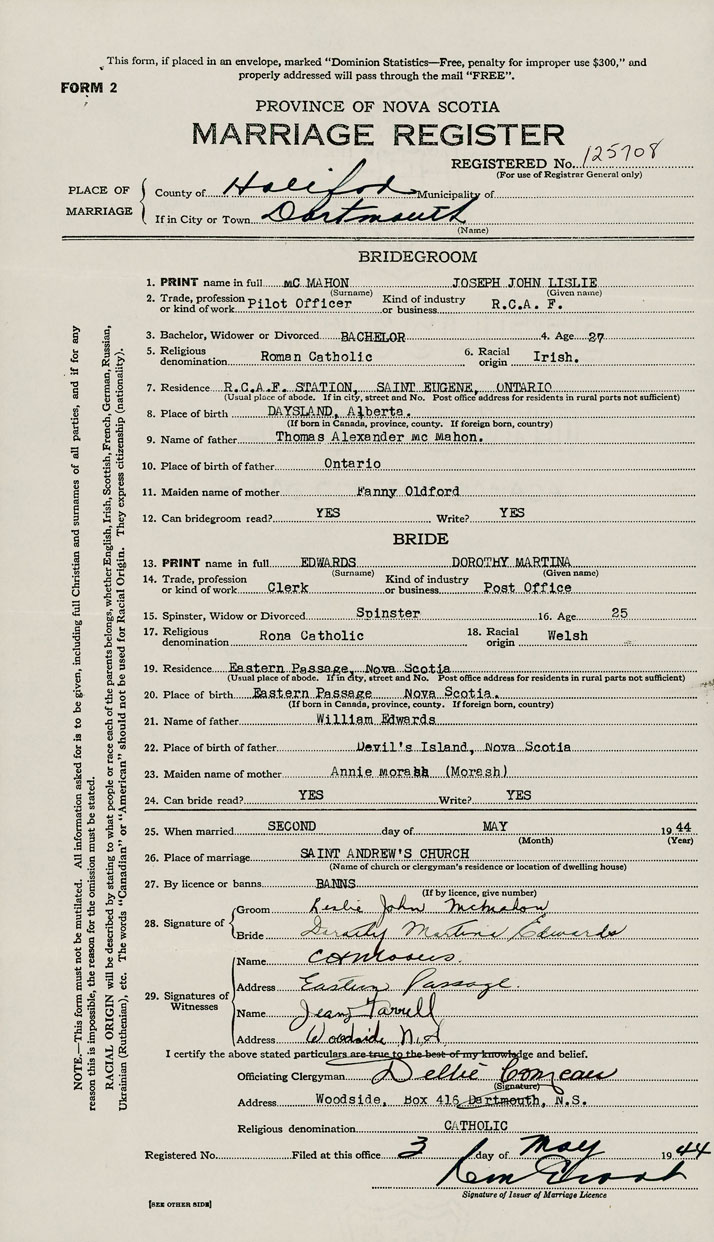 This form, if placed in an envelope, marked “Dominion Statistics—Free, penalty for improper use $300,” and
properly addressed will pass through the mail “FREE”.
FORM 2
PROVINCE OF NOVA SCOTIA
MARRIAGE REGISTER
REGISTERED No. 125708
(For use of Registrar General only)
PLACE OF MARRIAGE
County of Halifax Municipality of
If in City or Town Dartmouth
(Name)
BRIDEGROOM
1. PRINT name in full mC MAHON JOSEPH JOHN LISLIE
(Surname) (Given name)
2. Trade, profession or kind of work Pilot Officer Kind of industry or business R.C.A. F.
3. Bachelor, Widower or Divorced BACHELOR 4. Age 27
5. Religious denomination Roman Catholic 6. Racial origin Irish.
7. Residence R.C.A.F. STATION, SAINT EUGENE, ONTARIO
(Usual place of abode. If in city, street and No. Post office address for residents in rural parts not sufficient)
8. Place of birth DAYSLAND, Alberta.
(If born in Canada, province, county. If foreign born, country)
9. Name of father Thomas Alexander mc Mahon.
10. Place of birth of father Ontario
11. Maiden name of mother Fanny Oldford
12. Can bridegroom read? YES Write? YES
BRIDE
13. PRINT name in full EDWARDS DOROTHY MARTINA
(Surname) (Given name)
14. Trade, profession or kind of work Clerk Kind of industry or business Post Office
15. Spinster, Widow or Divorced Spinster 16. Age 25
17. Religious denomination Rona Catholic 18. Racial origin Welsh
19. Residence Eastern Passage, Nova Scotia
(Usual place of abode. If in city, street and No. Post office address for residents in rural parts not sufficient)
20. Place of birth Eastern Passage Nova Scotia.
(If born in Canada, province, county. If foreign born, country)
21. Name of father William Edwards
22. Place of birth of father Devil's Island, Nova Scotia
23. Maiden name of mother Annie morash (Morash)
24. Can bride read? YES Write? YES
25. When married SECOND day of MAY 1944
(Month) (Year)
26. Place of marriage SAINT ANDREW'S CHURCH
(Name of church or clergyman's residence or location of dwelling house)
27. By licence or banns BANNS
(If by licence, give number)
28. Signature of
Groom Leslie John McMahon
Bride Dorothy Martina Edwards
29. Signatures of Witnesses
Name
Address Eastern Passage.
Name Jean Farrell
Address Woodside N.S.
I certify the above stated particulars are true to the best of my knowledge and belief.
Officiating Clergyman Dellie Comeau
(Signature)
Address Woodside, Box 416 Dartmouth, N.S.
Religious denomination CATHOLIC
Registered No. Filed at this office 3 day of May 1944
Signature of Issuer of Marriage Licence
[SEE OTHER SIDE]
NOTE.—This form must not be mutilated. All information asked for is to be given, including full Christian and surnames of all parties, and if for any
reason this is impossible, the reason for the omission must be stated.
RACIAL ORIGIN will be described by stating to what people or race each of the parents belongs, whether English, Irish, Scottish, French, German, Russian,
Ukrainian (Ruthenian), etc. The words “Canadian” or “American” should not be used for Racial Origin. They express citizenship (nationality).